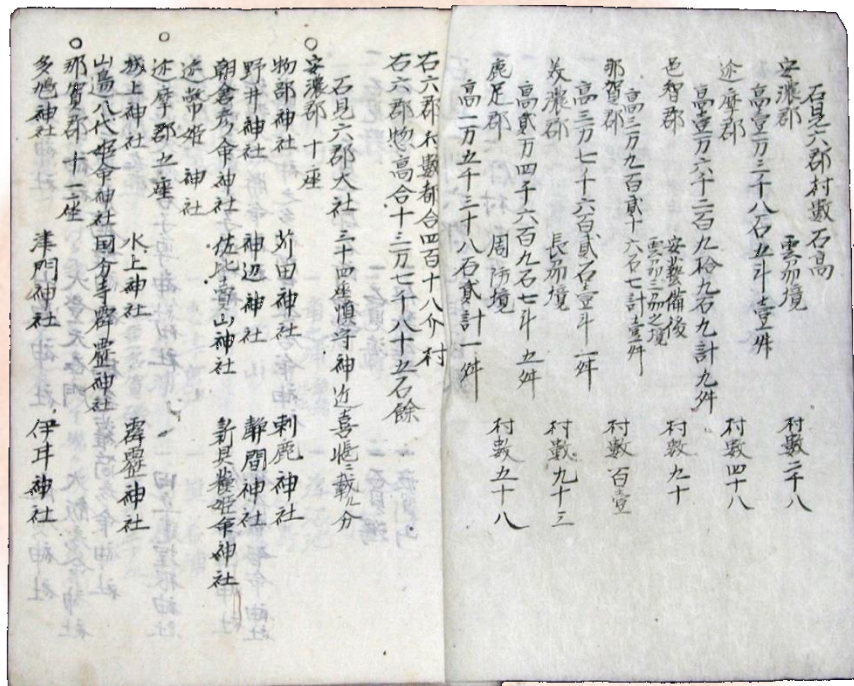 石見六郡村數石高
安濃郡 雲州境 村數二千八
高壹万三千八石五斗壹舛
迩摩郡 村數四十八
高壹万六千二百九拾九石九計九舛
邑智郡 安藝備後 雲州三州之境 村數九十
高三万九百貳十六石七計壹舛
那賀郡 村數百壹
高三万七千六百貳石壹斗一舛
美濃郡 長州境 村數九十三
高貳万四千六百九石七斗五舛
鹿足郡 周防境 村數五十八
高一万五千三十八石貳計一舛
右六郡村數都合四百十八介村
右六郡惣高合十三万七千八十五石餘
石見六郡大社 三十四座慎守神近喜帳ニ載ル分
○安濃郡 十座
物部神社 苅田神社 刺鹿神社
野井神社 神辺神社 静間神社
朝倉彦命神社 佐比賣山神社 新具蘇姫命神社
迩幣姫神社
○迩摩郡五座
城上神社 水上神社 霹靂神社
山邉八代姫命神社 国分寺霹靂神社
○那賀郡十二座
多鳩神社 津門神社 伊甘神社